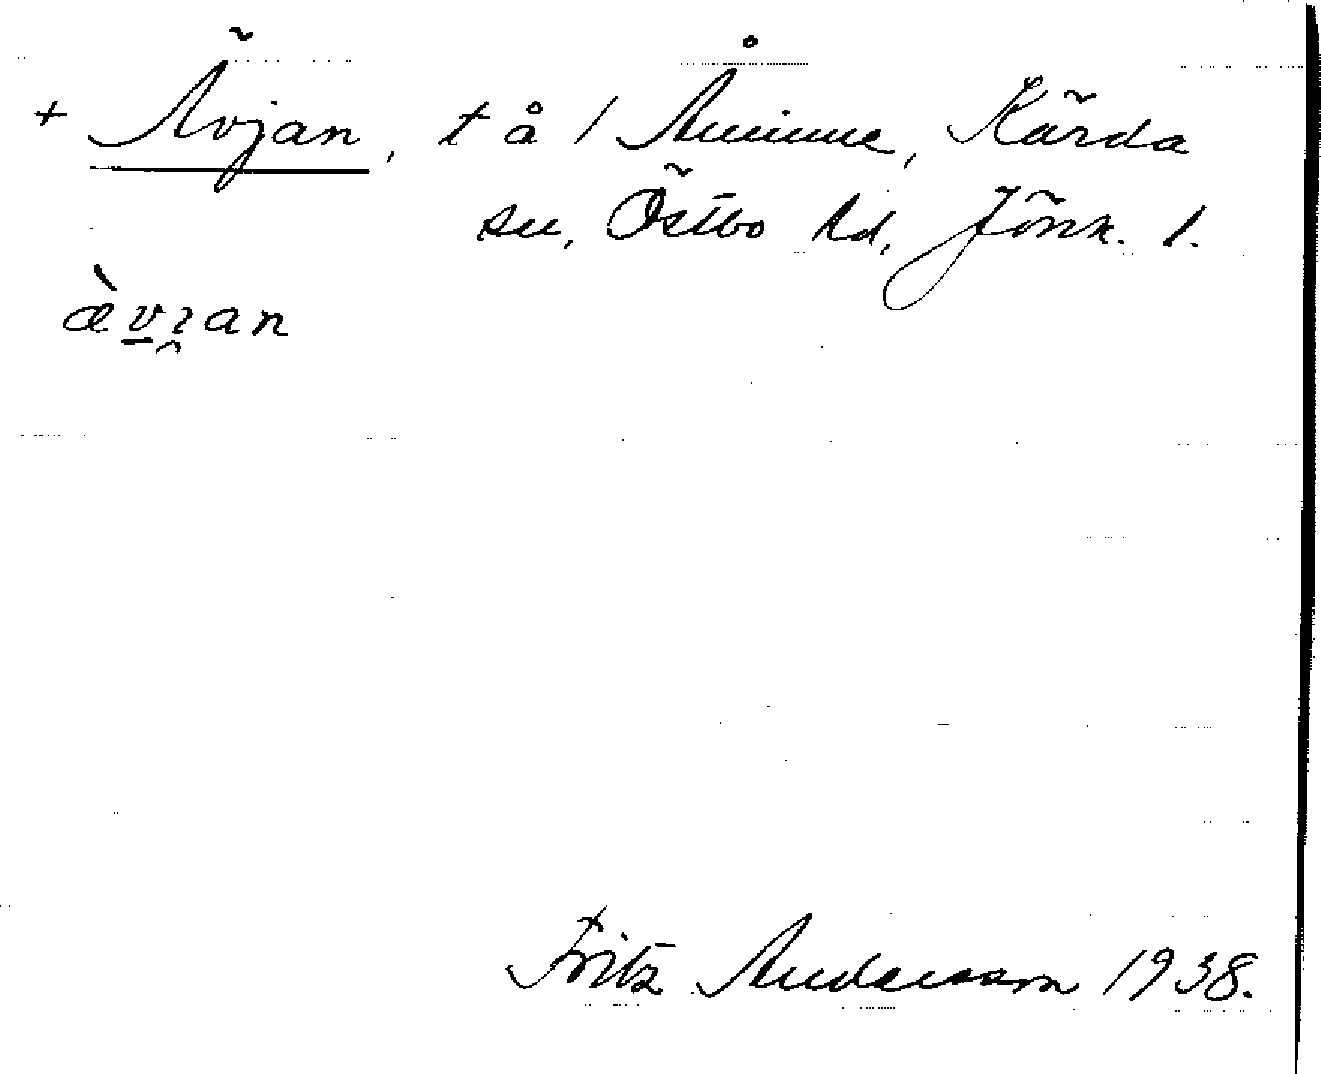 + Ävjan, t å / Åminne, Kärda
sn, Östbo hd, Jönk. l.
æ̀vɪ̯an
Fritz Andersson 1938.